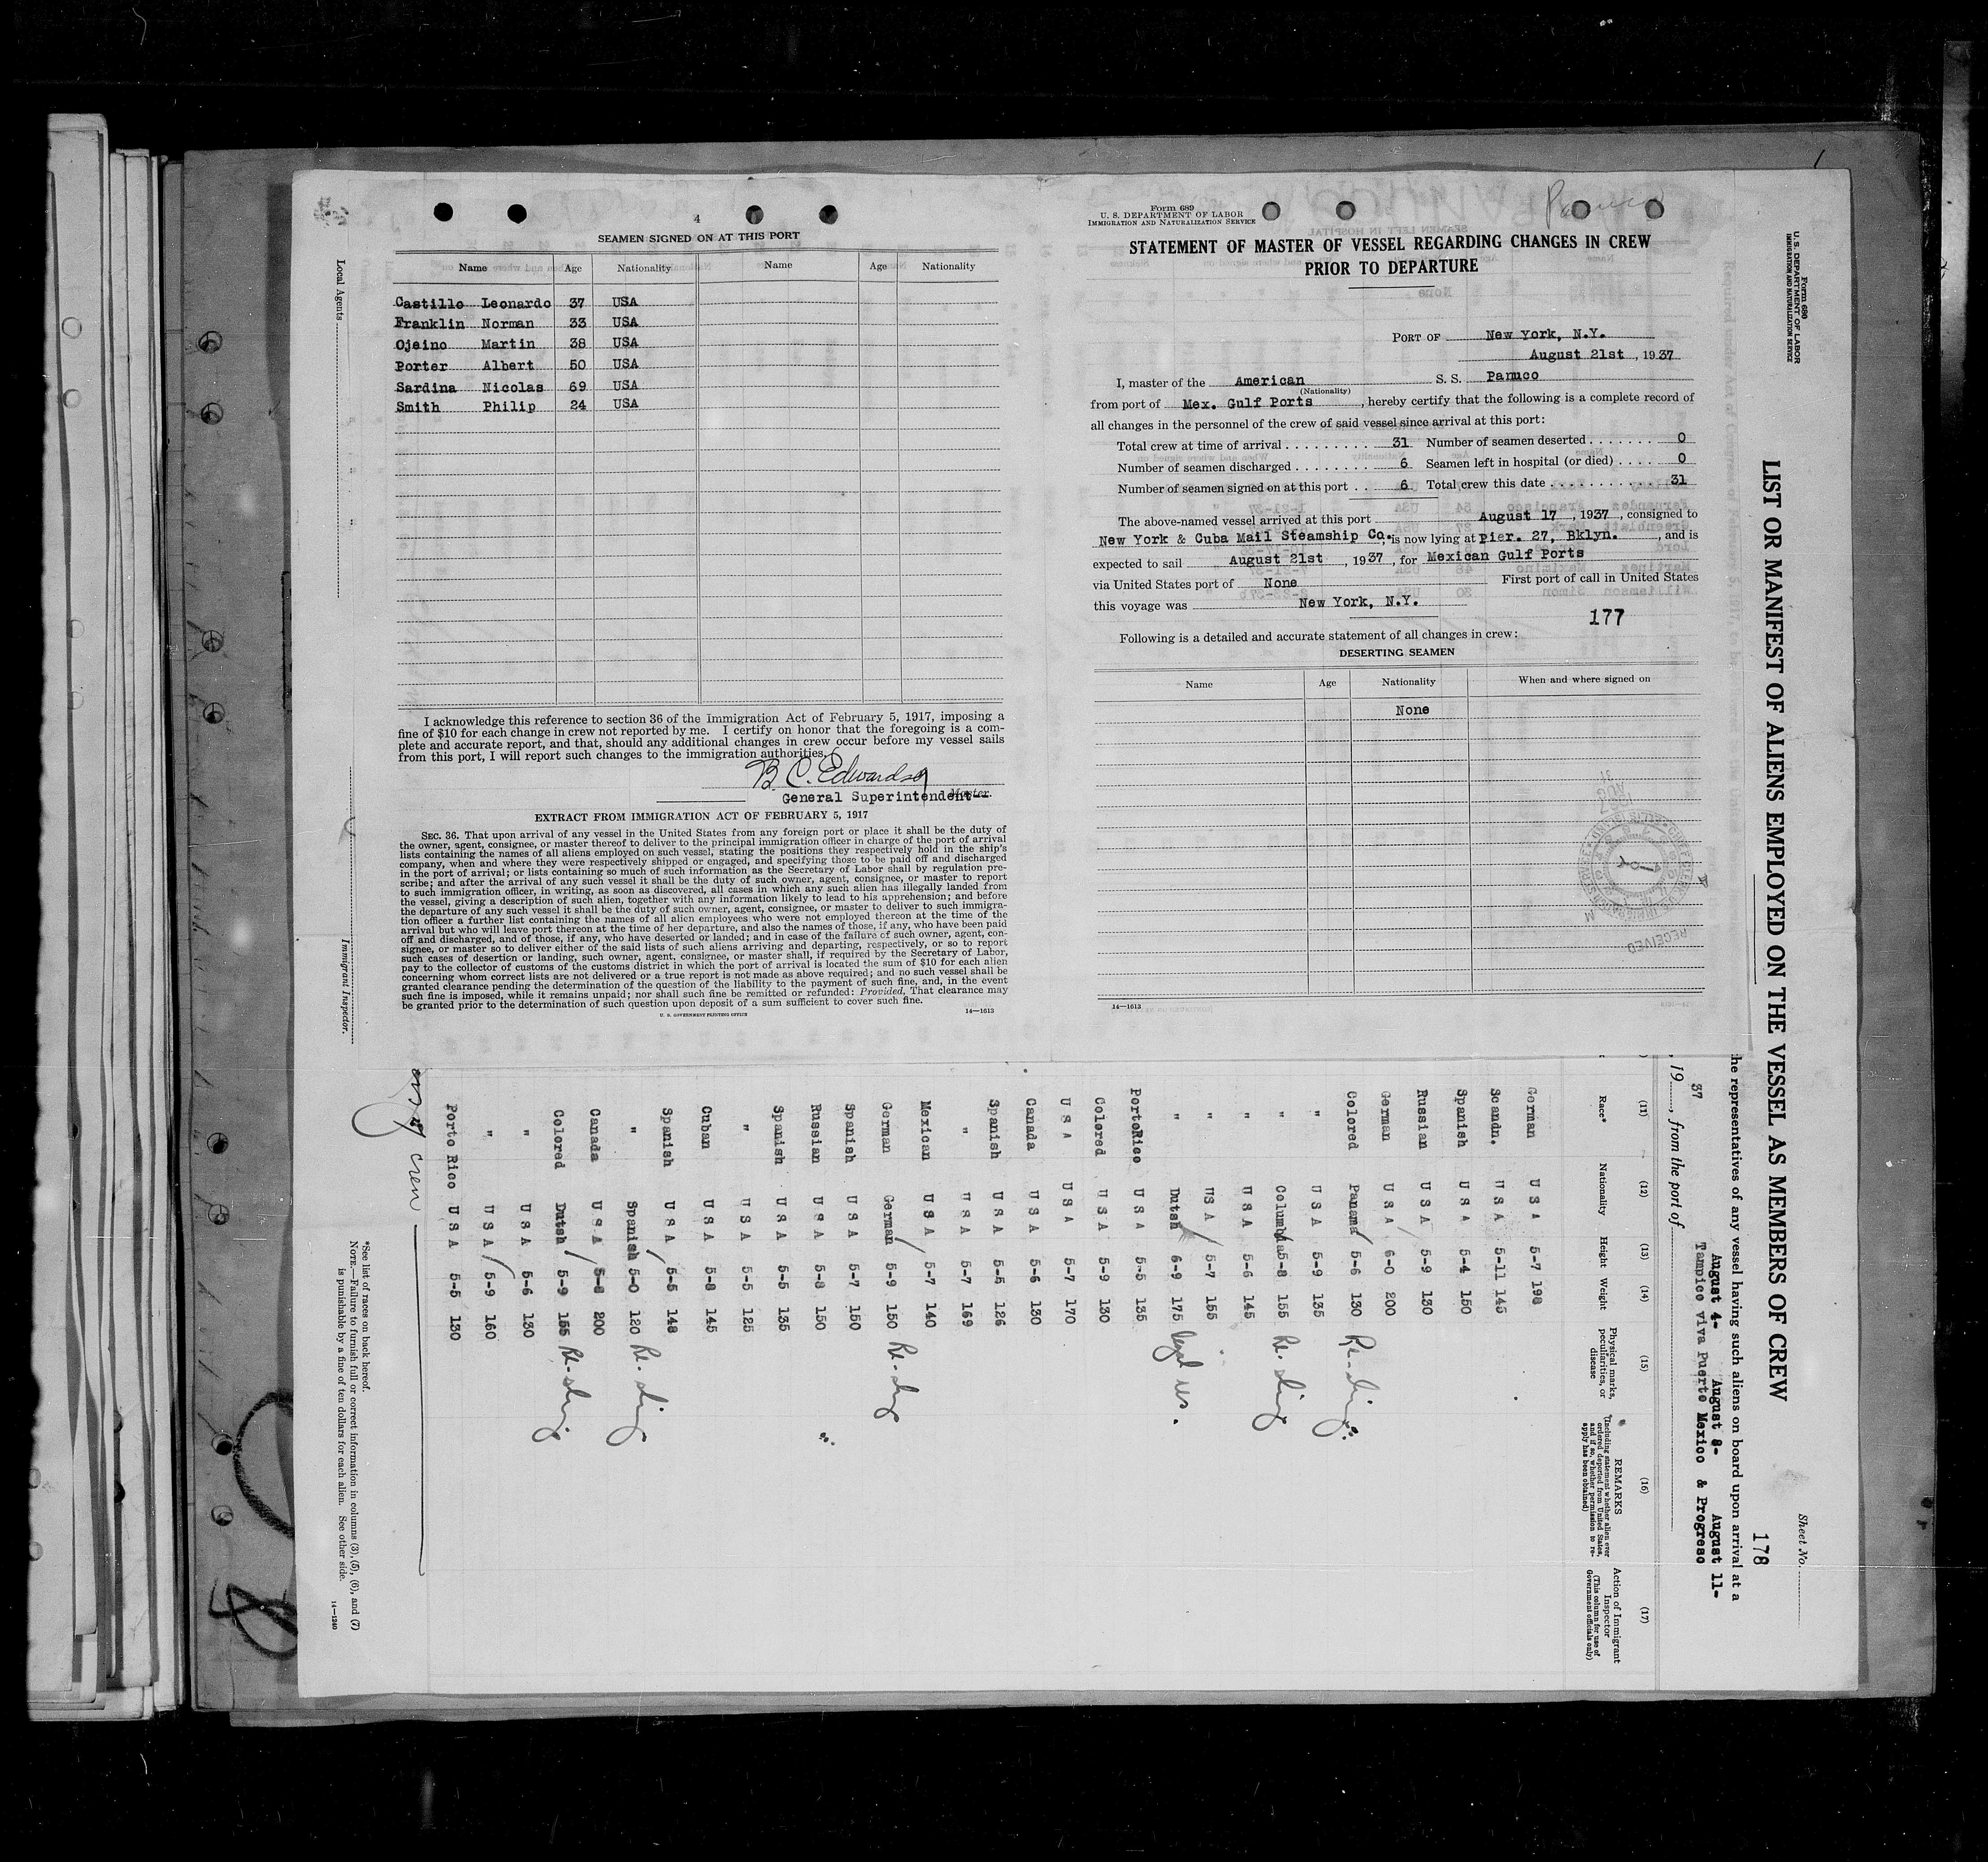 4
SEAMEN SIGNED ON AT THIS PORT
Name Age Nationality Name Age Nationality
Castillo Leonardo 37 USA
Franklin Norman 33 USA
Ojeino Martin 38 USA
Porter Albert 50 USA
Sardina Nicolas 69 USA
Smith Philip 24 USA
I acknowledge this reference to section 36 of the Immigration Act of February 5, 1917, imposing a
fine of $10 for each change in crew not reported by me. I certify on honor that the foregoing is a com-
plete and accurate report, and that, should any additional changes in crew occur before my vessel sails
from this port, I will report such changes to the immigration authorities.
B. C. Edwards
General Superintendent-- Master.
EXTRACT FROM IMMIGRATION ACT OF FEBRUARY 5, 1917
SEC. 36. That upon arrival of any vessel in the United States from any foreign port or place it shall be the duty of
the owner, agent, consignee, or master thereof to deliver to the principal immigration officer in charge of the port of arrival
lists containing the names of all aliens employed on such vessel, stating the positions they respectively hold in the ship's
company, when and where they were respectively shipped or engaged, and specifying those to be paid off and discharged
in the port of arrival; or lists containing so much of such information as the Secretary of Labor shall by regulation pre-
scribe; and after the arrival of any such vessel it shall be the duty of such owner, agent, consignee, or master to report
to such immigration officer, in writing, as soon as discovered, all cases in which any such alien has illegally landed from
the vessel, giving a description of such alien, together with any information likely to lead to his apprehension; and before
the departure of any such vessel it shall be the duty of such owner, agent, consignee, or master to deliver to such immigra-
tion officer a further list containing the names of all alien employees who were not employed thereon at the time of the
arrival but who will leave port thereon at the time of her departure, and also the names of those, if any, who have been paid
off and discharged, and of those, if any, who have deserted or landed; and in case of the failure of such owner, agent, con-
signee, or master so to deliver either of the said lists of such aliens arriving and departing, respectively, or so to report
such cases of desertion or landing, such owner, agent, consignee, or master shall, if required by the Secretary of Labor,
pay to the collector of customs of the customs district in which the port of arrival is located the sum of $10 for each alien
concerning whom correct lists are not delivered or a true report is not made as above required; and no such vessel shall be
granted clearance pending the determination of the question of the liability to the payment of such fine, and, in the event
such fine is imposed, while it remains unpaid; nor shall such fine be remitted or refunded: Provided, That clearance may
be granted prior to the determination of such question upon deposit of a sum sufficient to cover such fine.
U. S. GOVERNMENT PRINTING OFFICE 14—1613
Panuco
Form 689
U. S. DEPARTMENT OF LABOR
IMMIGRATION AND NATURALIZATION SERVICE
STATEMENT OF MASTER OF VESSEL REGARDING CHANGES IN CREW
PRIOR TO DEPARTURE
PORT OF New York, N.Y.
August 21st, 1937
I, master of the American S. S. Panuco
(Nationality)
from port of Mex. Gulf Ports, hereby certify that the following is a complete record of
all changes in the personnel of the crew of said vessel since arrival at this port:
Total crew at time of arrival 31 Number of seamen deserted 0
Number of seamen discharged 6 Seamen left in hospital (or died) 0
Number of seamen signed on at this port 6 Total crew this date 31
The above-named vessel arrived at this port August 17, 1937, consigned to
New York & Cuba Mail Steamship Co., is now lying at Pier. 27, Bklyn., and is
expected to sail August 21st, 1937, for Mexican Gulf Ports
via United States port of None First port of call in United States
this voyage was New York, N.Y.
177
Following is a detailed and accurate statement of all changes in crew:
DESERTING SEAMEN
Name Age Nationality When and where signed on
None
RECEIVED
14—1613
Form 680
U. S. DEPARTMENT OF LABOR
IMMIGRATION AND NATURALIZATION SERVICE
Sheet No.
LIST OR MANIFEST OF ALIENS EMPLOYED ON THE VESSEL AS MEMBERS OF CREW
178
the representatives of any vessel having such aliens on board upon arrival at a
August 4- August 8- August 11-
37 Tampico viva Puerto Mexico & Progreso
, 19, from the port of
(11) (12) (13) (14) (15) (16) (17)
Race* Nationality Height Weight Physical marks, peculiarities, or disease REMARKS (Including statement whether alien ever ordered deported from United States, and if so, whether permission to re-apply has been obtained) Action of Immigrant Inspector (This column for use of Government officials only)
German U S A 5-7 198
Scandn. U S A 5-11 145
Spanish U S A 5-4 150
Russian U S A 5-9 130
German U S A 6-0 200
Colored Panama 5-6 130
" U S A 5-9 135
" Columbia 5-8 155
" U S A 5-6 145
" U S A 5-7 155
" Dutsh 6-9 175 legal res.
PortoRico U S A 5-5 135
Colored U S A 5-9 130
U S A U S A 5-7 170
Canada U S A 5-6 130
Spanish U S A 5-5 126
" U S A 5-7 169
Mexican U S A 5-7 140
German German 5-9 150
Spanish U S A 5-7 150
Russian U S A 5-8 150
Spanish U S A 5-5 135
" U S A 5-5 125
Cuban U S A 5-8 145
Spanish U S A 5-5 148
" Spanish 5-0 120
Canada U S A 5-8 200
Colored Dutsh 5-9 155
" U S A 5-6 130
" U S A 5-9 160
Porto Rico U S A 5-5 130
crew
*See list of races on back hereof.
NOTE.—Failure to furnish full or correct information in columns (3), (5), (6), and (7)
is punishable by a fine of ten dollars for each alien. See other side.
14—1240
Local Agents
Immigrant Inspector.